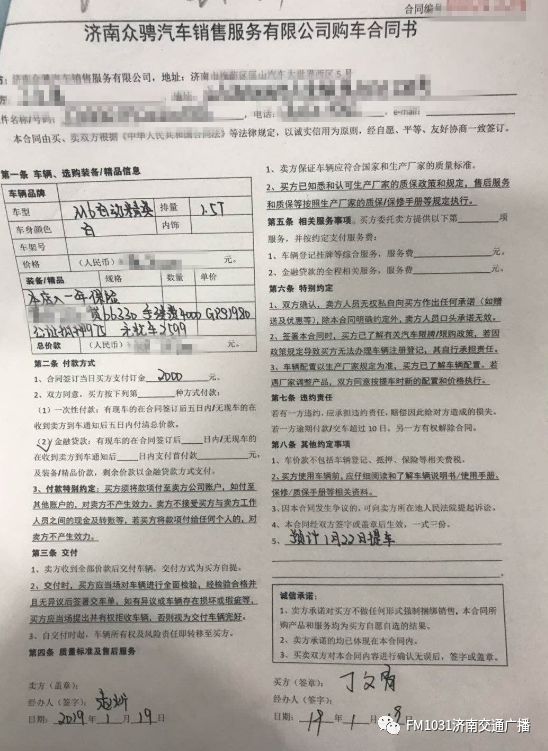 合同编号
济南众骋汽车销售服务有限公司购车合同书
济南众骋汽车销售服务有限公司，地址：济南市槐荫区匡山汽车大世界西区5号
地址：
件名称/号码：
电话：
e-mail:
本合同由买、卖双方根据《中华人民共和国合同法》等法律规定，以诚实信用为原则，经自愿、平等、友好协商一致签订。
第一条 车辆、选购装备/精品信息
车辆品牌
车型 M6自动精英 排量 1.5T
车身颜色 白 内饰
车架号
价格 （人民币） 元。
装备/精品 规格 数量 单价
本店入一年保险
贷66230 手续费4000 GPS1980
2599
总价款 （人民币） 元。
第二条 付款方式
1、合同签订当日买方支付订金 2000 元。
2、双方同意，买方按下列第 种方式付款：
（1）一次性付款：有现车的在合同签订后五日内/无现车的在
收到卖方到车通知后五日内付清总价款。
（2）金融贷款：有现车的在合同签订后 日内/无现车的
在收到卖方到车通知后 日内支付首付款 元，
及装备/精品价款，剩余价款以金融贷款方式支付。
3、付款特别约定：买方须将款项付至卖方公司账户，如付至
其他账户的，对卖方不产生效力。卖方不接受买方与卖方工作
人员之间的现金及转账等，若买方将款项付给任何个人的，对
卖方不产生效力。
第三条 交付
1、卖方收到全部价款后交付车辆，交付方式为买方自提。
2、交付时，买方应当场对车辆进行全面检验，经检验合格并
且无异议后签署交车单，如有异议或车辆存在损坏或瑕疵等，
买方应当场提出并有权拒收车辆，否则视为交付车辆完好。
3、自交付时起，车辆所有权及风险责任即转移至买方。
第四条 质量标准及售后服务
1、卖方保证车辆应符合国家和生产厂家的质量标准。
2、买方已知悉和认可生产厂家的质保政策和规定，售后服务
和质保等按照生产厂家的质保/保修手册等规定执行。
第五条 相关服务事项。买方委托卖方提供以下第 项
服务，并按约定支付服务费：
1、车辆登记挂牌等综合服务，服务费 元。
2、金融贷款的全程相关服务，服务费 元。
第六条 特别约定
1、双方确认，卖方人员无权私自向买方作出任何承诺（如赠
送及优惠等），除本合同明确约定外，卖方人员口头承诺无效。
2、签署本合同时，买方已了解有关汽车限牌/限购政策，若因
政策规定导致买方无法办理车辆注册登记，其自行承担责任。
3、车辆配置以生产厂家规定为准，买方已了解车辆配置。若
遇厂家调整产品，双方同意按提车时新的配置和价格执行。
第七条 违约责任
若有一方违约，应承担违约责任，赔偿因此给对方造成的损失。
若一方逾期付款/交车超过10日，另一方有权解除合同。
第八条 其他约定事项
1、车价款不包括车辆登记、抵押、保险等相关费税。
2、买方使用车辆前，应仔细阅读和了解车辆说明书/使用手册、
保修/质保手册等相关资料。
3、因本合同发生争议的，可向卖方所在地人民法院提起诉讼。
4、本合同经双方签字或盖章后生效，一式三份。
5、预计1月22日提车
诚信承诺：
1、卖方承诺对买方不做任何形式强制捆绑销售，本合同所
购产品和服务均为买方自愿自选的结果。
2、卖方承诺的均已体现在本合同内。
3、买卖双方对本合同内容进行确认无误后，签字或盖章。
卖方（盖章）：
经办人（签字）：
日期：2019年1月19日
买方（签章）：
经办人（签字）：
日期：19年1月19
FM1031济南交通广播